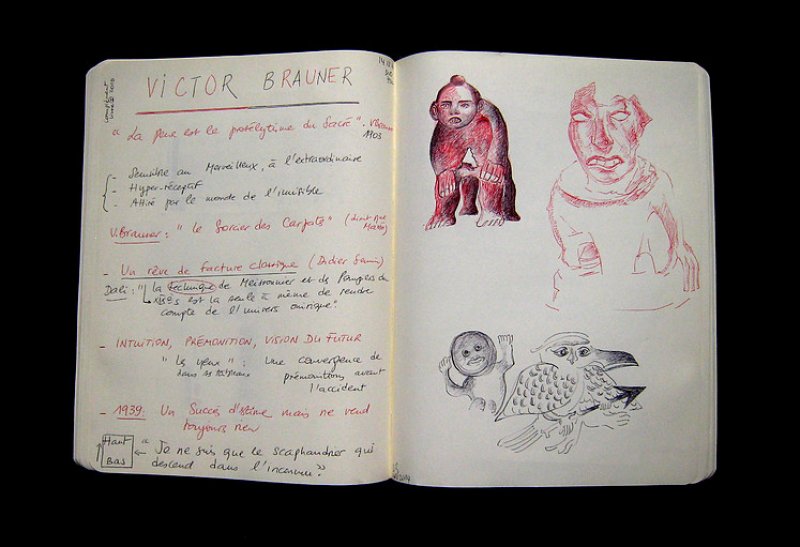 VICTOR BRAUNER
" La peur est le prosélytisme du Sacré".
1903
- Sensible au Merveilleux, à l'extraordinaire
- Hyper-réceptif
- Attiré par le monde de l'invisible
V.Brauner : "le Sorcier des Carpates"
- Un rêve de facture classique (Didier Semin)
Dali : " la technique de Meissonnier et des Pompiers du
XIXe s est la seule à même de rendre
compte de l'univers onirique".
- INTUITION, PRÉMONITION, VISION DU FUTUR
" Les yeux " : Une convergence de
dans ses tableaux prémonitions avant
l'accident
- 1939: Un Succès d'estime mais ne vend
toujours rien
Haut
Bas
" Je ne suis que le scaphandrier qui
descend dans l'inconnu."